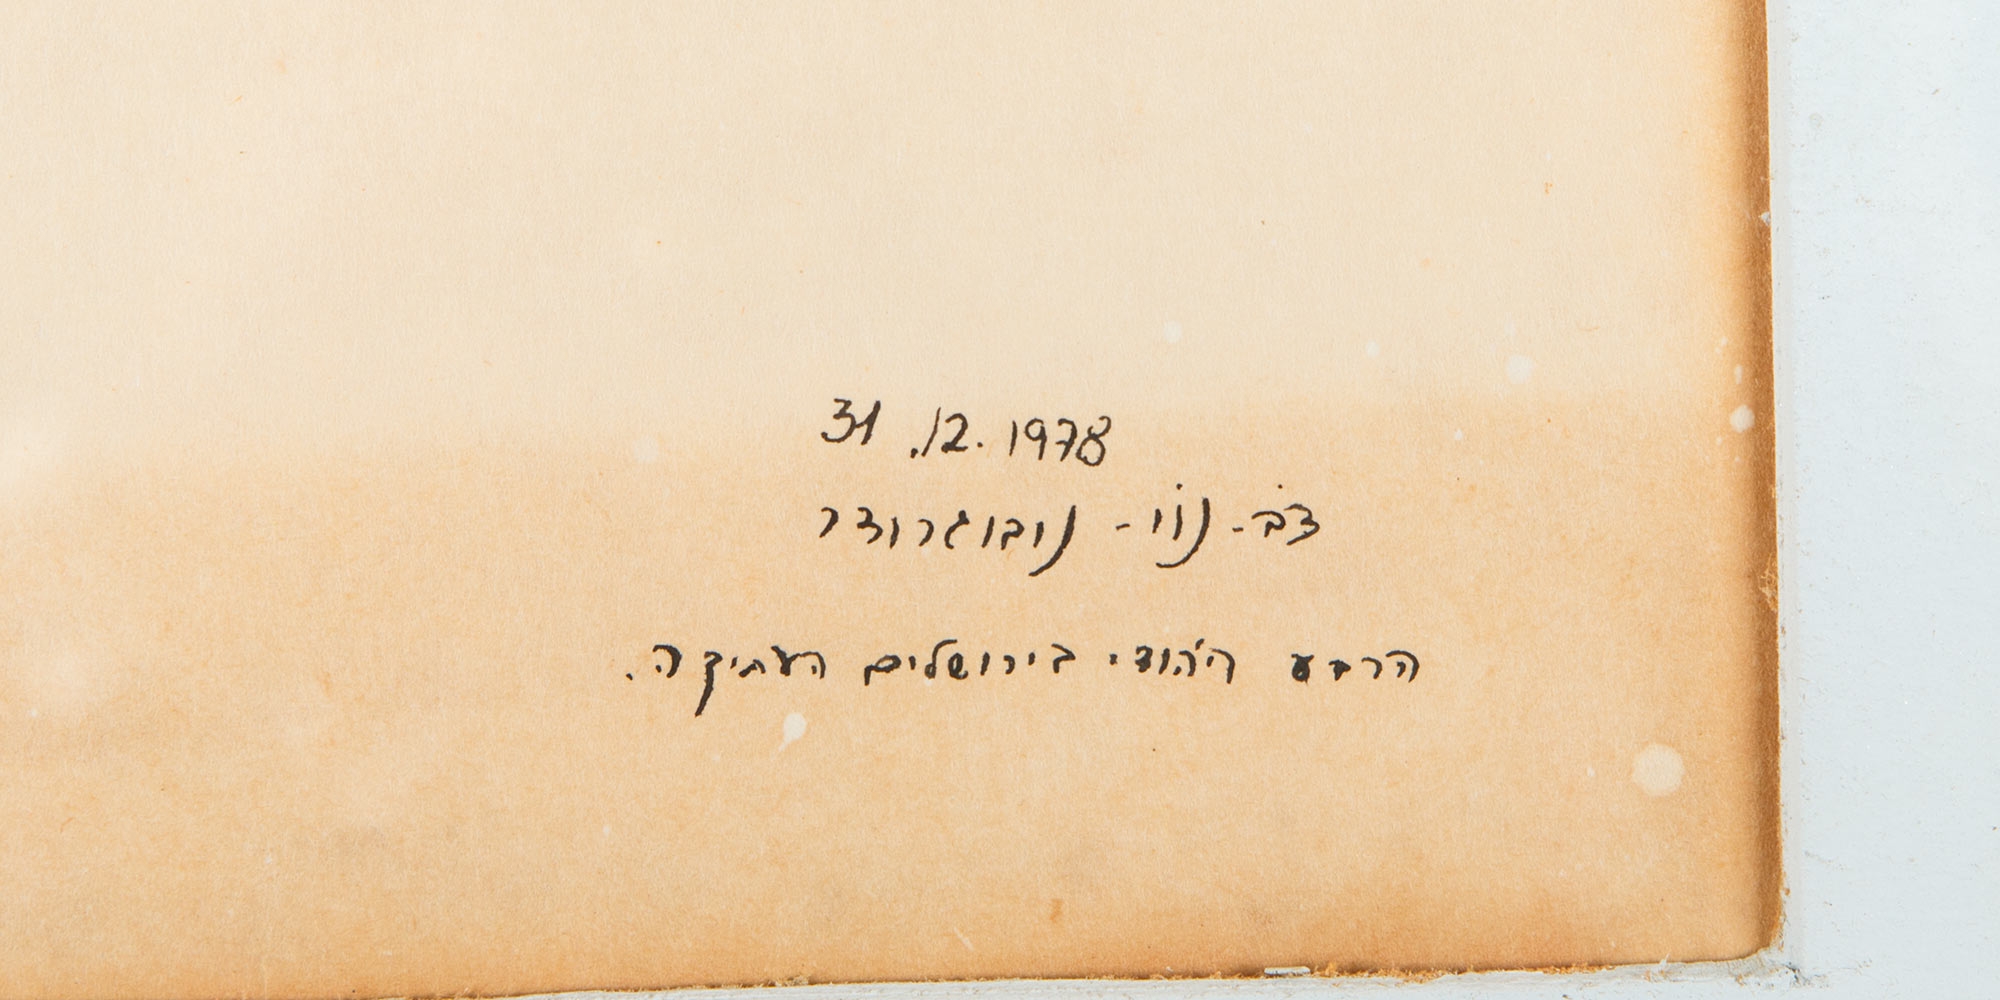 31.12.1978
דֹב-נוֹי-נובוגרודר
הרבע היהודי בירושלים העתיקה.